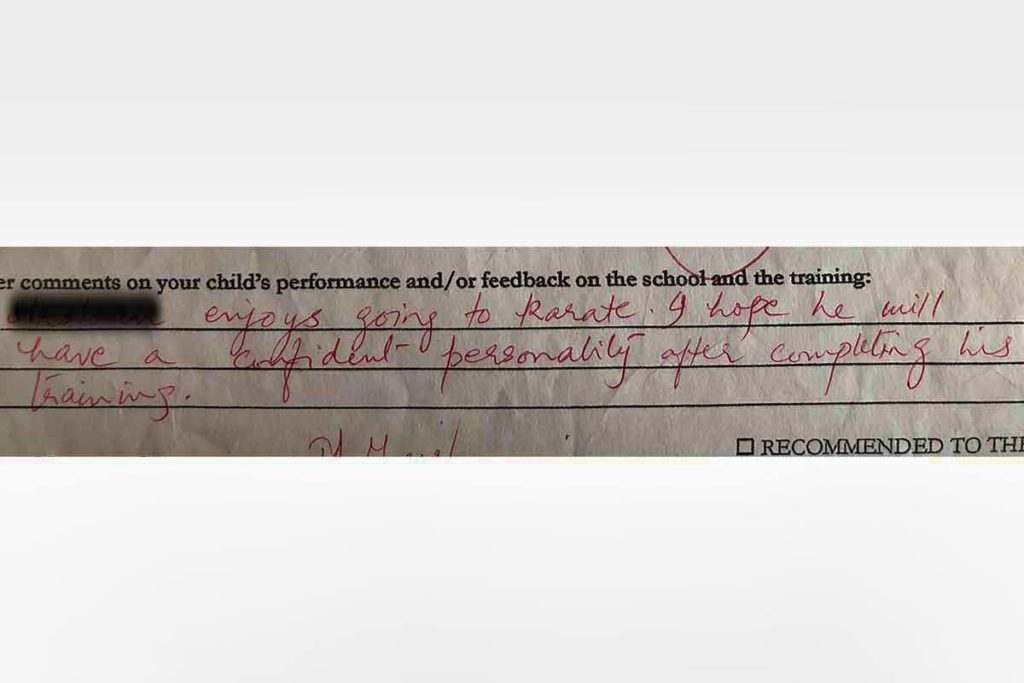 er comments on your child's performance and/or feedback on the school and the training:
enjoys going to karate. I hope he will
have a confident personality after completing his
training.
RECOMMENDED TO THE